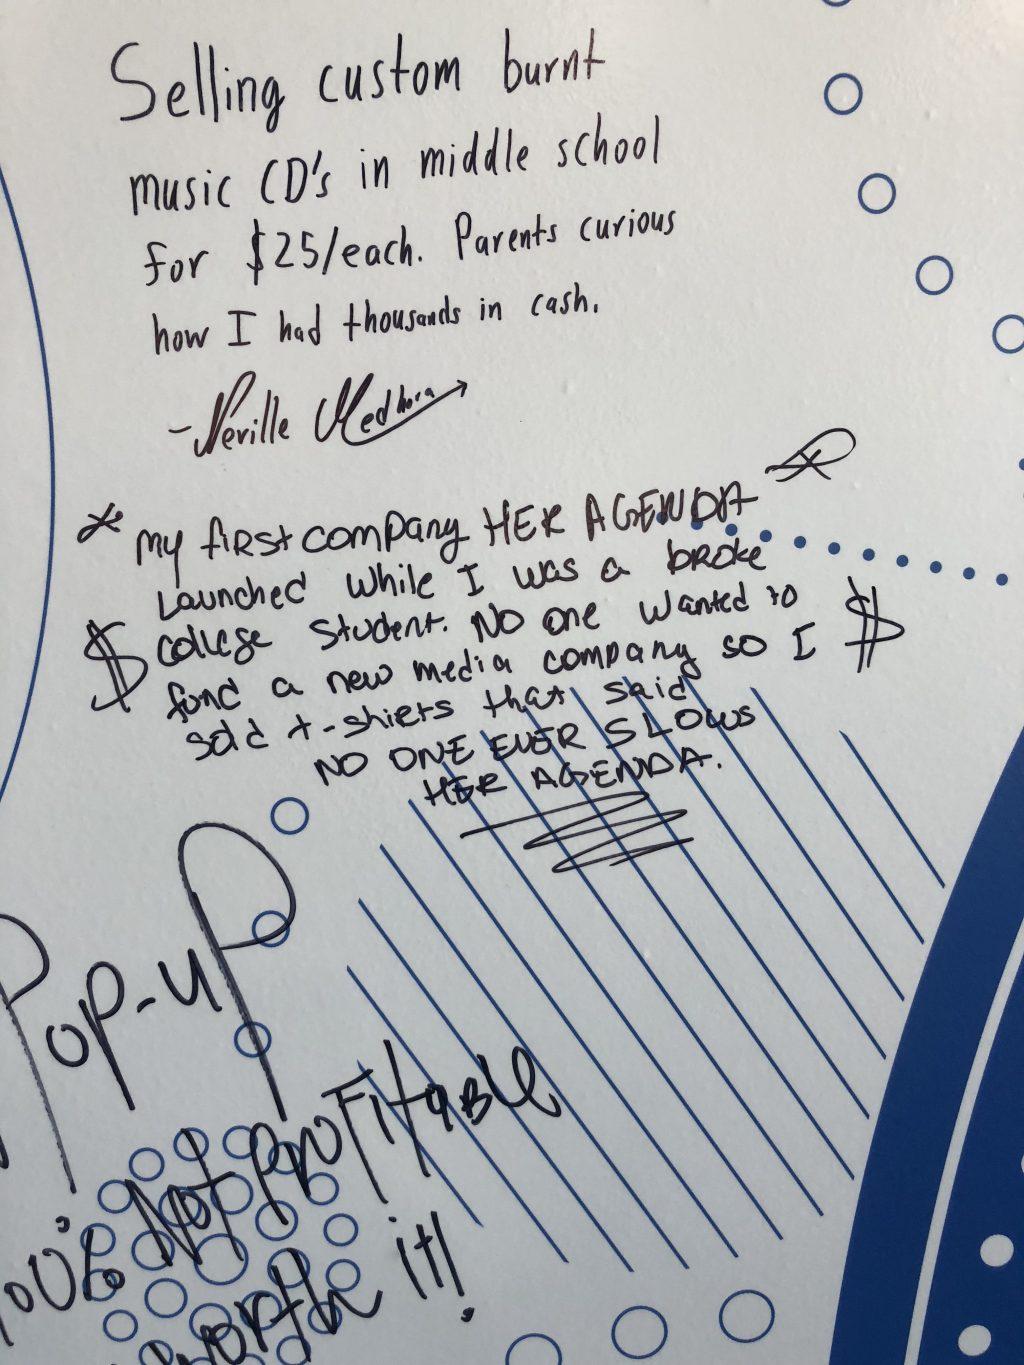 Selling custom burnt
music CD's in middle school
for $25/each. Parents curious
how I had thousands in cash.
- Neville Medhora
* my first company HER AGENDA
Launched while I was a broke
$ college student. No one wanted to $
fund a new media company so I
sold t-shirts that said
NO ONE EVER SLOWS
HER AGENDA.
Pop-up
100% Not profitable
worth it!